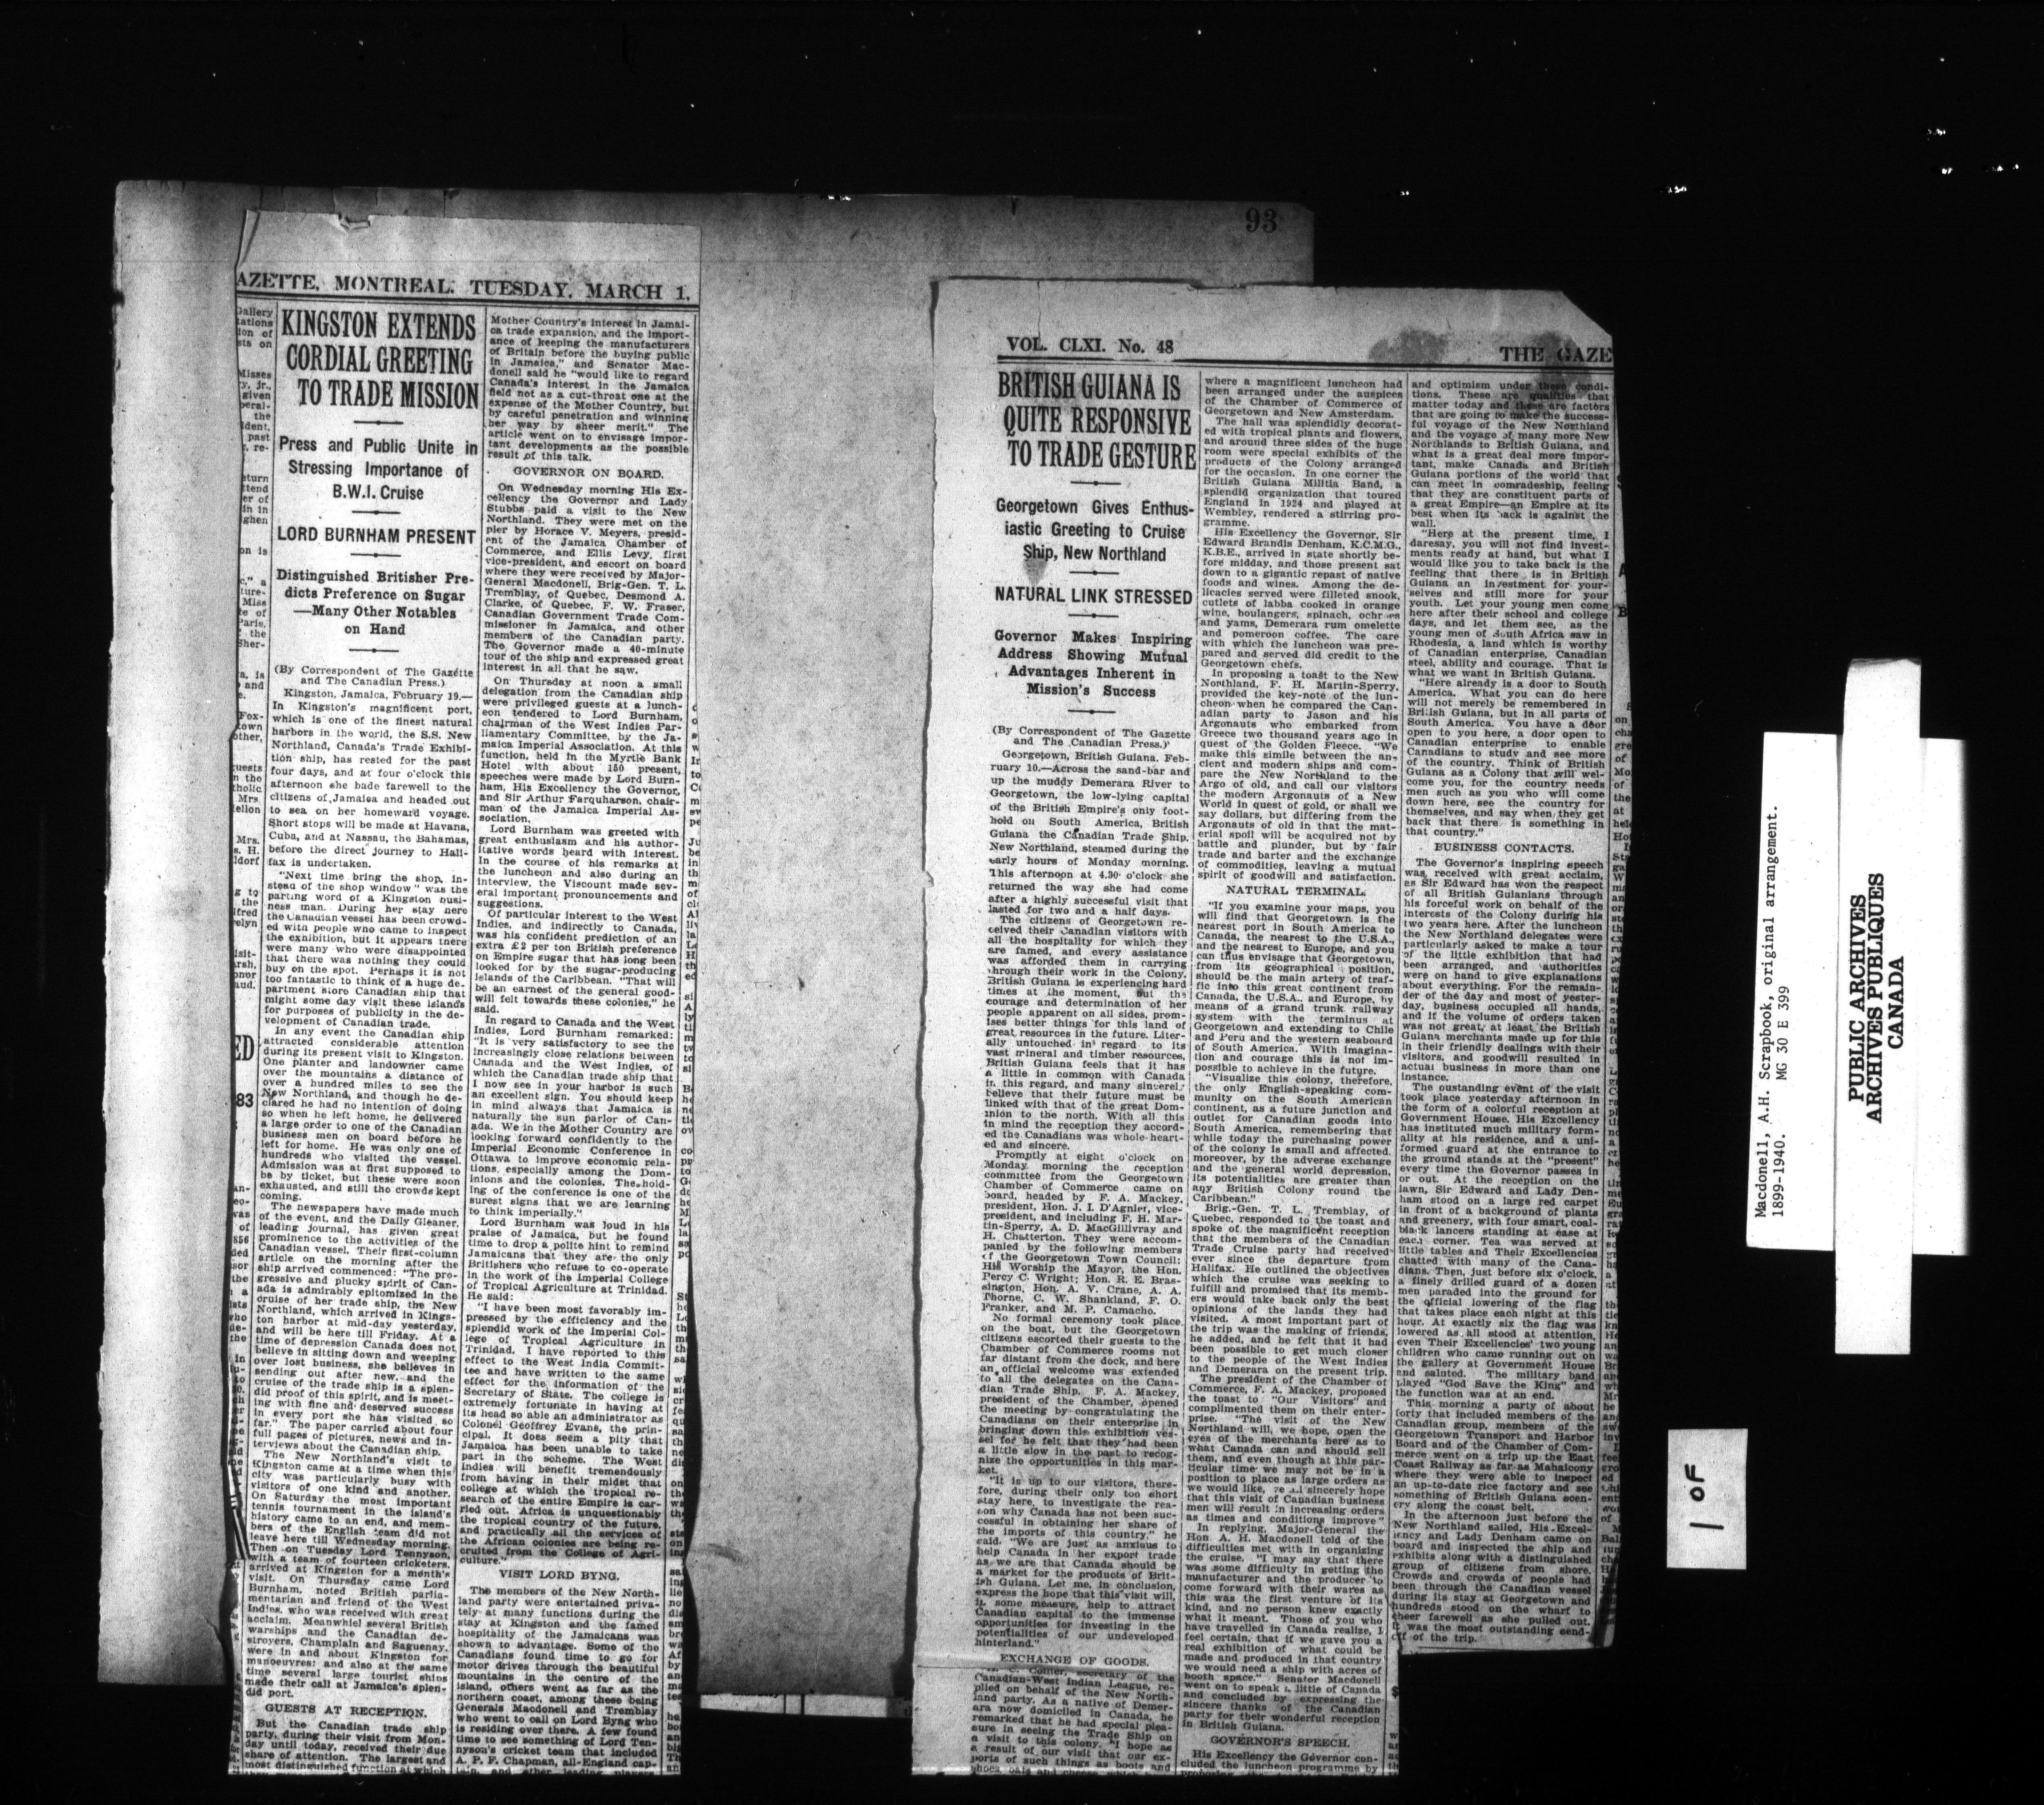 93
AZETTE, MONTREAL, TUESDAY, MARCH 1,
KINGSTON EXTENDS
CORDIAL GREETING
TO TRADE MISSION
Press and Public Unite in
Stressing Importance of
B.W.I. Cruise
LORD BURNHAM PRESENT
Distinguished Britisher Pre-
dicts Preference on Sugar
—Many Other Notables
on Hand
(By Correspondent of The Gazette
and The Canadian Press.)
Kingston, Jamaica, February 19.—
In Kingston's magnificent port,
which is one of the finest natural
harbors in the world, the S.S. New
Northland, Canada's Trade Exhibi-
tion ship, has rested for the past
four days, and at four o'clock this
afternoon she bade farewell to the
citizens of Jamaica and headed out
to sea on her homeward voyage.
Short stops will be made at Havana,
Cuba, and at Nassau, the Bahamas,
before the direct journey to Hali-
fax is undertaken.
"Next time bring the shop, in-
stead of the shop window" was the
parting word of a Kingston busi-
ness man. During her stay here
the Canadian vessel has been crowd-
ed with people who came to inspect
the exhibition, but it appears there
were many who were disappointed
that there was nothing they could
buy on the spot. Perhaps it is not
too fantastic to think of a huge de-
partment store Canadian ship that
might some day visit these islands
for purposes of publicity in the de-
velopment of Canadian trade.
In any event the Canadian ship
attracted considerable attention
during its present visit to Kingston.
One planter and landowner came
over the mountains a distance of
over a hundred miles to see the
New Northland, and though he de-
clared he had no intention of doing
so when he left home, he delivered
a large order to one of the Canadian
business men on board before he
left for home. He was only one of
hundreds who visited the vessel.
Admission was at first supposed to
be by ticket, but these were soon
exhausted, and still the crowds kept
coming.
The newspapers have made much
of the event, and the Daily Gleaner,
leading journal, has given great
prominence to the activities of the
Canadian vessel. Their first-column
article on the morning after the
ship arrived commenced: "The pro-
gressive and plucky spirit of Can-
ada is admirably epitomized in the
cruise of her trade ship, the New
Northland, which arrived in Kings-
ton harbor at mid-day yesterday,
and will be here till Friday. At a
time of depression Canada does not
believe in sitting down and weeping
over lost business, she believes in
sending out after new, and the
cruise of the trade ship is a splen-
did proof of this spirit, and is meet-
ing with fine and deserved success
in every port she has visited so
far." The paper carried about four
full pages of pictures, news and in-
terviews about the Canadian ship.
The New Northland's visit to
Kingston came at a time when this
city was particularly busy with
visitors of one kind and another.
On Saturday the most important
tennis tournament in the island's
history came to an end, and mem-
bers of the English team did not
leave here till Wednesday morning.
Then on Tuesday Lord Tennyson,
with a team of fourteen cricketers,
arrived at Kingston for a month's
visit. On Thursday came Lord
Burnham, noted British parlia-
mentarian and friend of the West
Indies, who was received with great
acclaim. Meanwhiel several British
warships and the Canadian de-
stroyers, Champlain and Saguenay,
were in and about Kingston for
manoeuvres; and also at the same
time several large tourist ships
made their call at Jamaica's splen-
did port.
GUESTS AT RECEPTION.
But the Canadian trade ship
party, during their visit from Mon-
day until today, received their due
share of attention. The largest and
most distinguished function at which
Mother Country's interest in Jamai-
ca trade expansion, and the import-
ance of keeping the manufacturers
of Britain before the buying public
in Jamaica," and Senator Mac-
donell said he "would like to regard
Canada's interest in the Jamaica
field not as a cut-throat one at the
expense of the Mother Country, but
by careful penetration and winning
her way by sheer merit." The
article went on to envisage impor-
tant developments as the possible
result of this talk.
GOVERNOR ON BOARD.
On Wednesday morning His Ex-
cellency the Governor and Lady
Stubbs paid a visit to the New
Northland. They were met on the
pier by Horace V. Meyers, presid-
ent of the Jamaica Chamber of
Commerce, and Ellis Levy, first
vice-president, and escort on board
where they were received by Major-
General Macdonell, Brig-Gen. T. L.
Tremblay, of Quebec, Desmond A.
Clarke, of Quebec, F. W. Fraser,
Canadian Government Trade Com-
missioner in Jamaica, and other
members of the Canadian party.
The Governor made a 40-minute
tour of the ship and expressed great
interest in all that he saw.
On Thursday at noon a small
delegation from the Canadian ship
were privileged guests at a lunch-
eon tendered to Lord Burnham,
chairman of the West Indies Par-
liamentary Committee, by the Ja-
maica Imperial Association. At this
function, held in the Myrtle Bank
Hotel with about 150 present,
speeches were made by Lord Burn-
ham, His Excellency the Governor,
and Sir Arthur Farquharson, chair-
man of the Jamaica Imperial As-
sociation.
Lord Burnham was greeted with
great enthusiasm and his author-
itative words heard with interest.
In the course of his remarks at
the luncheon and also during an
interview, the Viscount made sev-
eral important pronouncements and
suggestions.
Of particular interest to the West
Indies, and indirectly to Canada,
was his confident prediction of an
extra £2 per ton British preference
on Empire sugar that has long been
looked for by the sugar-producing
islands of the Caribbean. "That will
be an earnest of the general good-
will felt towards these colonies," he
said.
In regard to Canada and the West
Indies, Lord Burnham remarked:
"It is very satisfactory to see the
increasingly close relations between
Canada and the West Indies, of
which the Canadian trade ship that
I now see in your harbor is such
an excellent sign. You should keep
in mind always that Jamaica is
naturally the sun parlor of Can-
ada. We in the Mother Country are
looking forward confidently to the
Imperial Economic Conference in
Ottawa to improve economic rela-
tions, especially among the Dom-
inions and the colonies. The hold-
ing of the conference is one of the
surest signs that we are learning
to think imperially."
Lord Burnham was loud in his
praise of Jamaica, but he found
time to drop a polite hint to remind
Jamaicans that they are the only
Britishers who refuse to co-operate
in the work of the Imperial College
of Tropical Agriculture at Trinidad.
He said:
"I have been most favorably im-
pressed by the efficiency and the
splendid work of the Imperial Col-
lege of Tropical Agriculture in
Trinidad. I have reported to this
effect to the West India Commit-
tee and have written to the same
effect for the information of the
Secretary of State. The college is
extremely fortunate in having at
its head so able an administrator as
Colonel Geoffrey Evans, the prin-
cipal. It does seem a pity that
Jamaica has been unable to take
part in the scheme. The West
Indies will benefit tremendously
from having in their midst that
college at which the tropical re-
search of the entire Empire is car-
ried out. Africa is unquestionably
the tropical country of the future,
and practically all the services of
the African colonies are being re-
cruited from the College of Agri-
culture."
VISIT LORD BYNG.
The members of the New North-
land party were entertained priva-
tely at many functions during the
stay at Kingston and the famed
hospitality of the Jamaicans was
shown to advantage. Some of the
Canadians found time to go for
motor drives through the beautiful
mountains in the centre of the
island, others went as far as the
northern coast, among these being
Generals Macdonell and Tremblay
who went to call on Lord Byng who
is residing over there. A few found
time to see something of Lord Ten-
nyson's cricket team that included
A. P. F. Chapman, all-England cap-
tain, and other leading players
VOL. CLXI. No. 48
THE GAZE
BRITISH GUIANA IS
QUITE RESPONSIVE
TO TRADE GESTURE
Georgetown Gives Enthus-
iastic Greeting to Cruise
Ship, New Northland
NATURAL LINK STRESSED
Governor Makes Inspiring
Address Showing Mutual
Advantages Inherent in
Mission's Success
(By Correspondent of The Gazette
and The Canadian Press.)
Georgetown, British Guiana, Feb-
ruary 10.—Across the sand-bar and
up the muddy Demerara River to
Georgetown, the low-lying capital
of the British Empire's only foot-
hold on South America, British
Guiana the Canadian Trade Ship,
New Northland, steamed during the
early hours of Monday morning.
This afternoon at 4.30 o'clock she
returned the way she had come
after a highly successful visit that
lasted for two and a half days.
The citizens of Georgetown re-
ceived their Canadian visitors with
all the hospitality for which they
are famed, and every assistance
was afforded them in carrying
through their work in the Colony.
British Guiana is experiencing hard
times at the moment, but the
courage and determination of her
people apparent on all sides, prom-
ises better things for this land of
great resources in the future. Liter-
ally untouched in regard to its
vast mineral and timber resources,
British Guiana feels that it has
a little in common with Canada
in this regard, and many sincerely
believe that their future must be
linked with that of the great Dom-
inion to the north. With all this
in mind the reception they accord-
ed the Canadians was whole-heart-
ed and sincere.
Promptly at eight o'clock on
Monday morning the reception
committee from the Georgetown
Chamber of Commerce came on
board, headed by F. A. Mackey,
president, Hon. J. I. D'Agnier, vice-
president, and including F. H. Mar-
tin-Sperry, A. D. MacGillivray and
H. Chatterton. They were accom-
panied by the following members
of the Georgetown Town Council:
His Worship the Mayor, the Hon.
Percy C. Wright; Hon. R. E. Bras-
sington, Hon. A. V. Crane, A. A.
Thorne, C. W. Shankland, F. O.
Franker, and M. P. Camacho.
No formal ceremony took place
on the boat, but the Georgetown
citizens escorted their guests to the
Chamber of Commerce rooms not
far distant from the dock, and here
an official welcome was extended
to all the delegates on the Cana-
dian Trade Ship. F. A. Mackey,
president of the Chamber, opened
the meeting by congratulating the
Canadians on their enterprise in
bringing down this exhibition ves-
sel for he felt that they had been
a little slow in the past to recog-
nize the opportunities in this mar-
ket.
"It is up to our visitors, there-
fore, during their only too short
stay here, to investigate the rea-
son why Canada has not been suc-
cessful in obtaining her share of
the imports of this country," he
said. "We are just as anxious to
help Canada in her export trade
as we are that Canada should be
a market for the products of Brit-
ish Guiana. Let me, in conclusion,
express the hope that this visit will,
in some measure, help to attract
Canadian capital to the immense
opportunities for investing in the
potentialities of our undeveloped
hinterland."
EXCHANGE OF GOODS.
secretary of the
Canadian-West Indian League, re-
plied on behalf of the New North-
land party. As a native of Demer-
ara now domiciled in Canada, he
remarked that he had special plea-
sure in seeing the Trade Ship on
a visit to this colony. "I hope as
a result of our visit that our ex-
ports of such things as boots and
shoes, oats and cheese
where a magnificent luncheon had
been arranged under the auspices
of the Chamber of Commerce of
Georgetown and New Amsterdam.
The hall was splendidly decorat-
ed with tropical plants and flowers,
and around three sides of the huge
room were special exhibits of the
products of the Colony arranged
for the occasion. In one corner the
British Guiana Militia Band, a
splendid organization that toured
England in 1924 and played at
Wembley, rendered a stirring pro-
gramme.
His Excellency the Governor, Sir
Edward Brandis Denham, K.C.M.G.,
K.B.E., arrived in state shortly be-
fore midday, and those present sat
down to a gigantic repast of native
foods and wines. Among the de-
licacies served were filleted snook,
cutlets of labba cooked in orange
wine, boulangers, spinach, ochroes
and yams, Demerara rum omelette
and pomeroon coffee. The care
with which the luncheon was pre-
pared and served did credit to the
Georgetown chefs.
In proposing a toast to the New
Northland, F. H. Martin-Sperry,
provided the key-note of the lun-
cheon when he compared the Can-
adian party to Jason and his
Argonauts who embarked from
Greece two thousand years ago in
quest of the Golden Fleece. "We
make this simile between the an-
cient and modern ships and com-
pare the New Northland to the
Argo of old, and call our visitors
the modern Argonauts of a New
World in quest of gold, or shall we
say dollars, but differing from the
Argonauts of old in that the mat-
erial spoil will be acquired not by
battle and plunder, but by fair
trade and barter and the exchange
of commodities, leaving a mutual
spirit of goodwill and satisfaction.
NATURAL TERMINAL.
"If you examine your maps, you
will find that Georgetown is the
nearest port in South America to
Canada, the nearest to the U.S.A.,
and the nearest to Europe, and you
can thus envisage that Georgetown,
from its geographical position,
should be the main artery of traf-
fic into this great continent from
Canada, the U.S.A., and Europe, by
means of a grand trunk railway
system with the terminus at
Georgetown and extending to Chile
and Peru and the western seaboard
of South America. With imagina-
tion and courage this is not im-
possible to achieve in the future.
"Visualize this colony, therefore,
the only English-speaking com-
munity on the South American
continent, as a future junction and
outlet for Canadian goods into
South America, remembering that
while today the purchasing power
of the colony is small and affected,
moreover, by the adverse exchange
and the general world depression,
its potentialities are greater than
any British Colony round the
Caribbean."
Brig.-Gen. T. L. Tremblay, of
Quebec, responded to the toast and
spoke of the magnificent reception
that the members of the Canadian
Trade Cruise party had received
ever since the departure from
Halifax. He outlined the objectives
which the cruise was seeking to
fulfill and promised that its memb-
ers would take back only the best
opinions of the lands they had
visited. A most important part of
the trip was the making of friends,
he added, and he felt that it had
been possible to get much closer
to the people of the West Indies
and Demerara on the present trip.
The president of the Chamber of
Commerce, F. A. Mackey, proposed
the toast to "Our Visitors" and
complimented them on their enter-
prise. "The visit of the New
Northland will, we hope, open the
eyes of the merchants here as to
what Canada can and should sell
them, and even though at this par-
ticular time we may not be in a
position to place as large orders as
we would like, we all sincerely hope
that this visit of Canadian business
men will result in increasing orders
as times and conditions improve"
In replying, Major-General the
Hon. A. H. Macdonell told of the
difficulties met with in organizing
the cruise. "I may say that there
was some difficulty in getting the
manufacturer and the producer to
come forward with their wares as
this was the first venture of its
kind, and no person knew exactly
what it meant. Those of you who
have travelled in Canada realize, I
feel certain, that if we gave you a
real exhibition of what could be
made and produced in that country
we would need a ship with acres of
booth space." Senator Macdonell
went on to speak a little of Canada
and concluded by expressing the
sincere thanks of the Canadian
party for their wonderful reception
in British Guiana.
GOVERNOR'S SPEECH.
His Excellency the Governor con-
cluded the luncheon programme by
and optimism under these condi-
tions. These are qualities that
matter today and these are factors
that are going to make the success-
ful voyage of the New Northland
and the voyage of many more New
Northlands to British Guiana, and
what is a great deal more impor-
tant, make Canada and British
Guiana portions of the world that
can meet in comradeship, feeling
that they are constituent parts of
a great Empire—an Empire at its
best when its back is against the
wall.
"Here at the present time, I
daresay, you will not find invest-
ments ready at hand, but what I
would like you to take back is the
feeling that there is in British
Guiana an investment for your-
selves and still more for your
youth. Let your young men come
here after their school and college
days, and let them see, as the
young men of South Africa saw in
Rhodesia, a land which is worthy
of Canadian enterprise, Canadian
steel, ability and courage. That is
what we want in British Guiana.
"Here already is a door to South
America. What you can do here
will not merely be remembered in
British Guiana, but in all parts of
South America. You have a door
open to you here, a door open to
Canadian enterprise to enable
Canadians to study and see more
of the country. Think of British
Guiana as a Colony that will wel-
come you, for the country needs
men such as you who will come
down here, see the country for
themselves, and say when they get
back that there is something in
that country."
BUSINESS CONTACTS.
The Governor's inspiring speech
was received with great acclaim,
as Sir Edward has won the respect
of all British Guianians through
his forceful work on behalf of the
interests of the Colony during his
two years here. After the luncheon
the New Northland delegates were
particularly asked to make a tour
of the little exhibition that had
been arranged, and authorities
were on hand to give explanations
about everything. For the remain-
der of the day and most of yester-
day, business occupied all hands,
and if the volume of orders taken
was not great, at least the British
Guiana merchants made up for this
in their friendly dealings with their
visitors, and goodwill resulted in
actual business in more than one
instance.
The oustanding event of the visit
took place yesterday afternoon in
the form of a colorful reception at
Government House. His Excellency
has instituted much military form-
ality at his residence, and a uni-
formed guard at the entrance to
the ground stands at the "present"
every time the Governor passes in
or out. At the reception on the
lawn, Sir Edward and Lady Den-
ham stood on a large red carpet
in front of a background of plants
and greenery, with four smart, coal-
black lancers standing at ease at
each corner. Tea was served at
little tables and Their Excellencies
chatted with many of the Cana-
dians. Then, just before six o'clock,
a finely drilled guard of a dozen
men paraded into the ground for
the official lowering of the flag
that takes place each night at this
hour. At exactly six the flag was
lowered as all stood at attention,
even Their Excellencies' two young
children who came running out on
the gallery at Government House
and saluted. The military band
played "God Save the King" and
the function was at an end.
This morning a party of about
forty that included members of the
Canadian group, members of the
Georgetown Transport and Harbor
Board and of the Chamber of Com-
merce went on a trip up the East
Coast Railway as far as Mahaicony
where they were able to inspect
an up-to-date rice factory and see
something of British Guiana scen-
ery along the coast belt.
In the afternoon just before the
New Northland sailed, His Excel-
lency and Lady Denham came on
board and inspected the ship and
exhibits along with a distinguished
group of citizens from shore.
Crowds and crowds of people had
been through the Canadian vessel
during its stay at Georgetown and
hundreds stood on the wharf to
cheer farewell as she pulled out.
It was the most outstanding send-
off of the trip.
Macdonell, A.H. Scrapbook, original arrangement.
1899-1940. MG 30 E 399
PUBLIC ARCHIVES
ARCHIVES PUBLIQUES
CANADA
1 OF